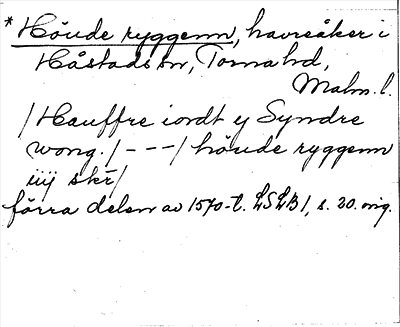 * Höude ryggenn, havreåker i
Håstads sn, Torna hd,
Malm. l.
/Hauffre iordt y Syndre
wong./ - - - / höude ryggenn
iiij skr/
förra delen av 1570-t. LSLB 1, s. 20. orig.